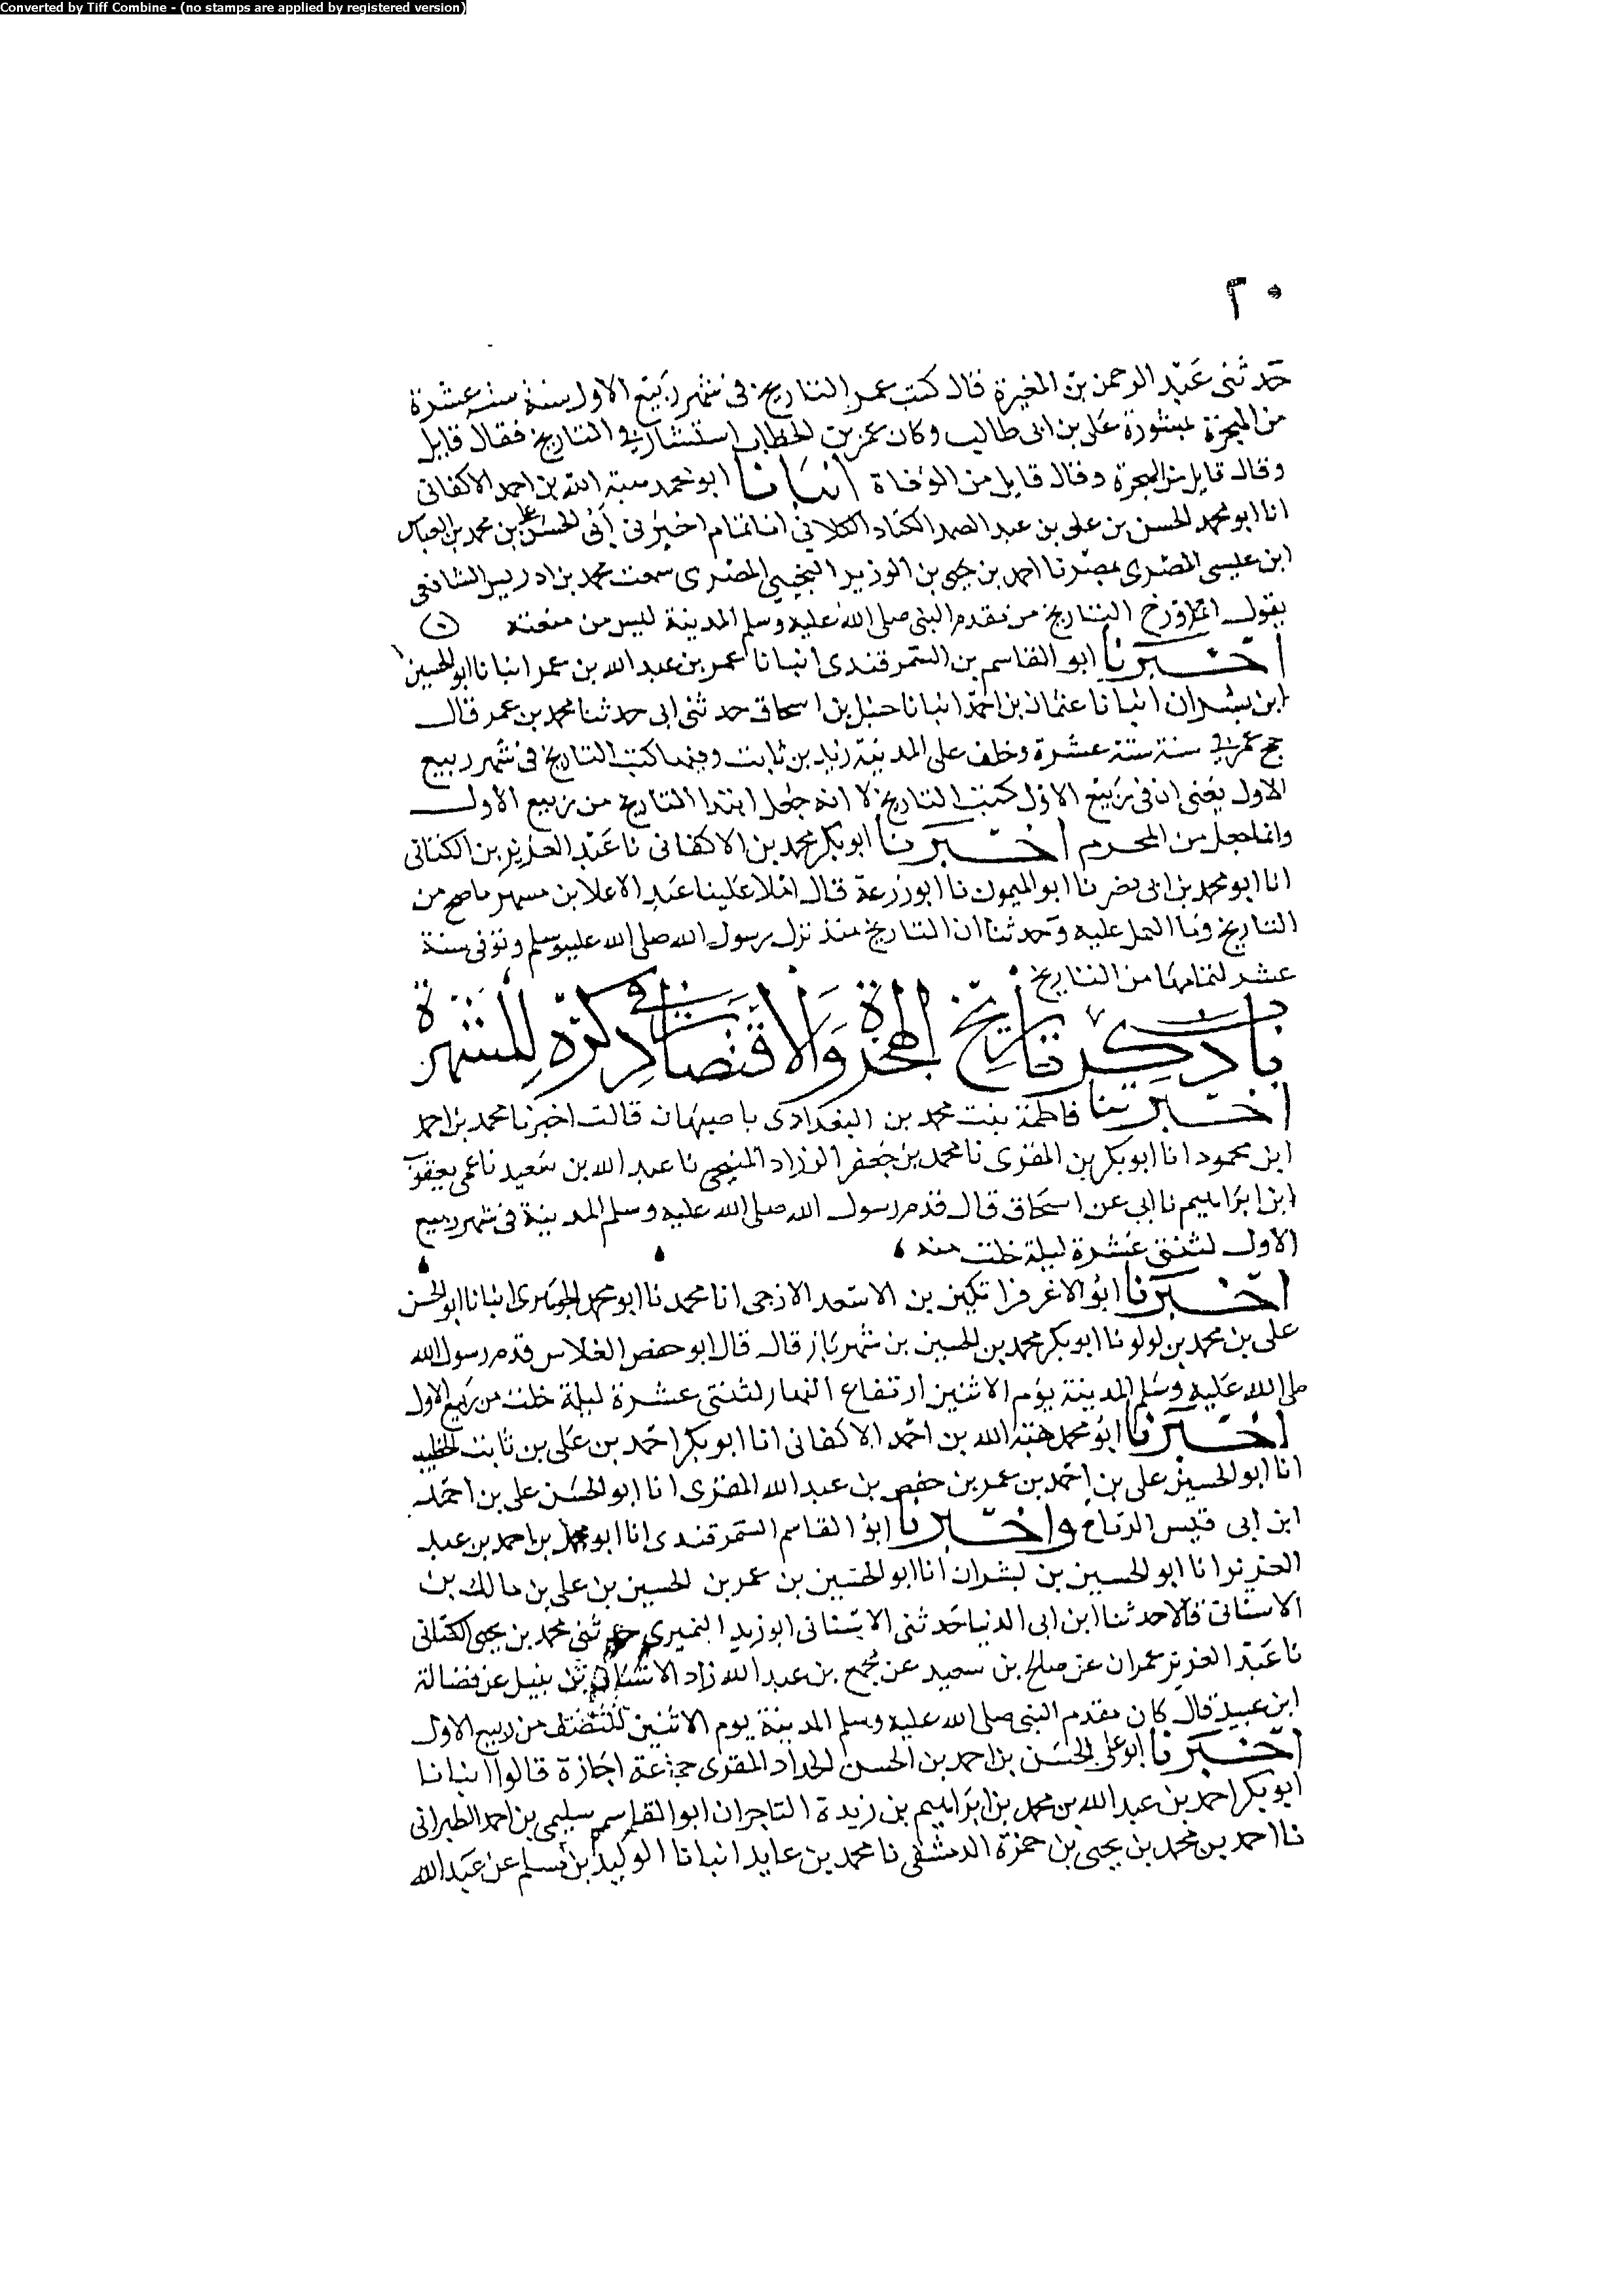 Converted by Tiff Combine - (no stamps are applied by registered version)
٢٠
حدثنى عبد الرحمن بن المغيرة قال كتب عمر التاريخ فى شهر ربيع الاول سنة ست عشرة
من الهجرة بمشورة على بن ابى طالب وكان عمر بن الخطاب استشار فى التاريخ فقال قايل
وقال قايل من الهجرة وقال قايل من الوفاة انبانا ابو محمد هبة الله بن احمد الاكفانى
انا ابو محمد الحسن بن على بن عبد الصمد الكلابى انا تمام اخبرنى ابى الحسن على بن محمد بن العباس
ابن عيسى المصرى بمصر نا احمد بن يحيى بن الوزير التجيبى المصرى سمعت محمد بن ادريس الشافعى
يقول التاريخ من مقدم النبى صلى الله عليه وسلم المدينة ليس من مبعثه
اخبرنا ابو القاسم بن السمرقندى انبانا عمر بن عبد الله بن عمر انبانا ابو الحسين
ابن بشران انبانا عثمان بن احمد انبانا حنبل بن اسحاق حدثنى ابى حدثنا محمد بن عمر قال
حج عمر فى سنة ستة عشرة وخلف على المدينة زيد بن ثابت وفيها كتب التاريخ فى شهر ربيع
الاول يعنى ان فى ربيع الاول كتب التاريخ لا انه جعل ابتدا التاريخ من ربيع الاول
وانما جعل من المحرم اخبرنا ابو بكر محمد بن الاكفانى نا عبد العزيز بن الكتانى
انا ابو محمد بن ابى نصر نا ابو الميمون نا ابو زرعة قال املا علينا عبد الاعلا بن مسهر ما صح من
التاريخ وما العمل عليه وحدثنا ان التاريخ منذ نزل رسول الله صلى الله عليه وسلم وتوفى سنة
عشر لتمامها من التاريخ
باب ذكر تاريخ الهجرة والاقتصار فى ذكره للشهرة
اخبرتنا فاطمة بنت محمد بن البغدادى باصبهان قالت اخبرنا محمد بن احمد
ابن محمود انا ابو بكر بن المقرى نا محمد بن جعفر الزراد المنبجى نا عبد الله بن سعيد نا عمى يعقوب
ابن ابراهيم نا ابى عن اسحاق قال قدم رسول الله صلى الله عليه وسلم المدينة فى شهر ربيع
الاول لثنتى عشرة ليلة خلت منه
اخبرنا ابو الاغر قراتكين بن الاسعد الازجى انا محمد نا ابو محمد الجوهرى انبانا ابو الحسن
على بن محمد بن لولو نا ابو بكر محمد بن الحسين بن شهريار قال قال ابو حفص الفلاس قدم رسول الله
صلى الله عليه وسلم المدينة يوم الاثنين ارتفاع النهار لثنتى عشرة ليلة خلت من ربيع الاول
اخبرنا ابو محمد هبة الله بن احمد الاكفانى انا ابو بكر احمد بن على بن ثابت الخطيب
انا ابو الحسين على بن احمد بن عمر بن حفص بن عبد الله المقرى انا ابو الحسن على بن احمد
ابن ابى قيس الرفاء واخبرنا ابو القاسم السمرقندى انا ابو محمد بن احمد بن عبد
العزيز انا ابو الحسين بن بشران انا ابو الحسين بن عمر بن الحسين بن على بن مالك بن
الاشنانى قالا حدثنا ابن ابى الدنيا حدثنى الاشنانى ابو زيد النميرى حدثنى محمد بن يحيى الكنانى
نا عبد العزيز عمران عن صالح بن سعيد عن مجمع بن عبد الله زاد الاشنانى بن نبيل عن فضالة
ابن عبيد قال كان مقدم النبى صلى الله عليه وسلم المدينة يوم الاثنين من ربيع الاول
اخبرنا ابو على الحسن بن احمد بن الحسن الحداد المقرى جماعة اجازة قالوا انبانا
ابو بكر احمد بن عبد الله بن محمد بن ابراهيم بن زيدة التاجر ان ابو القاسم سليمى بن احمد الطبرانى
نا احمد بن محمد بن يحيى بن حمزة الدمشقى نا محمد بن عايد انبانا الوليد بن مسلم عن عبد الله